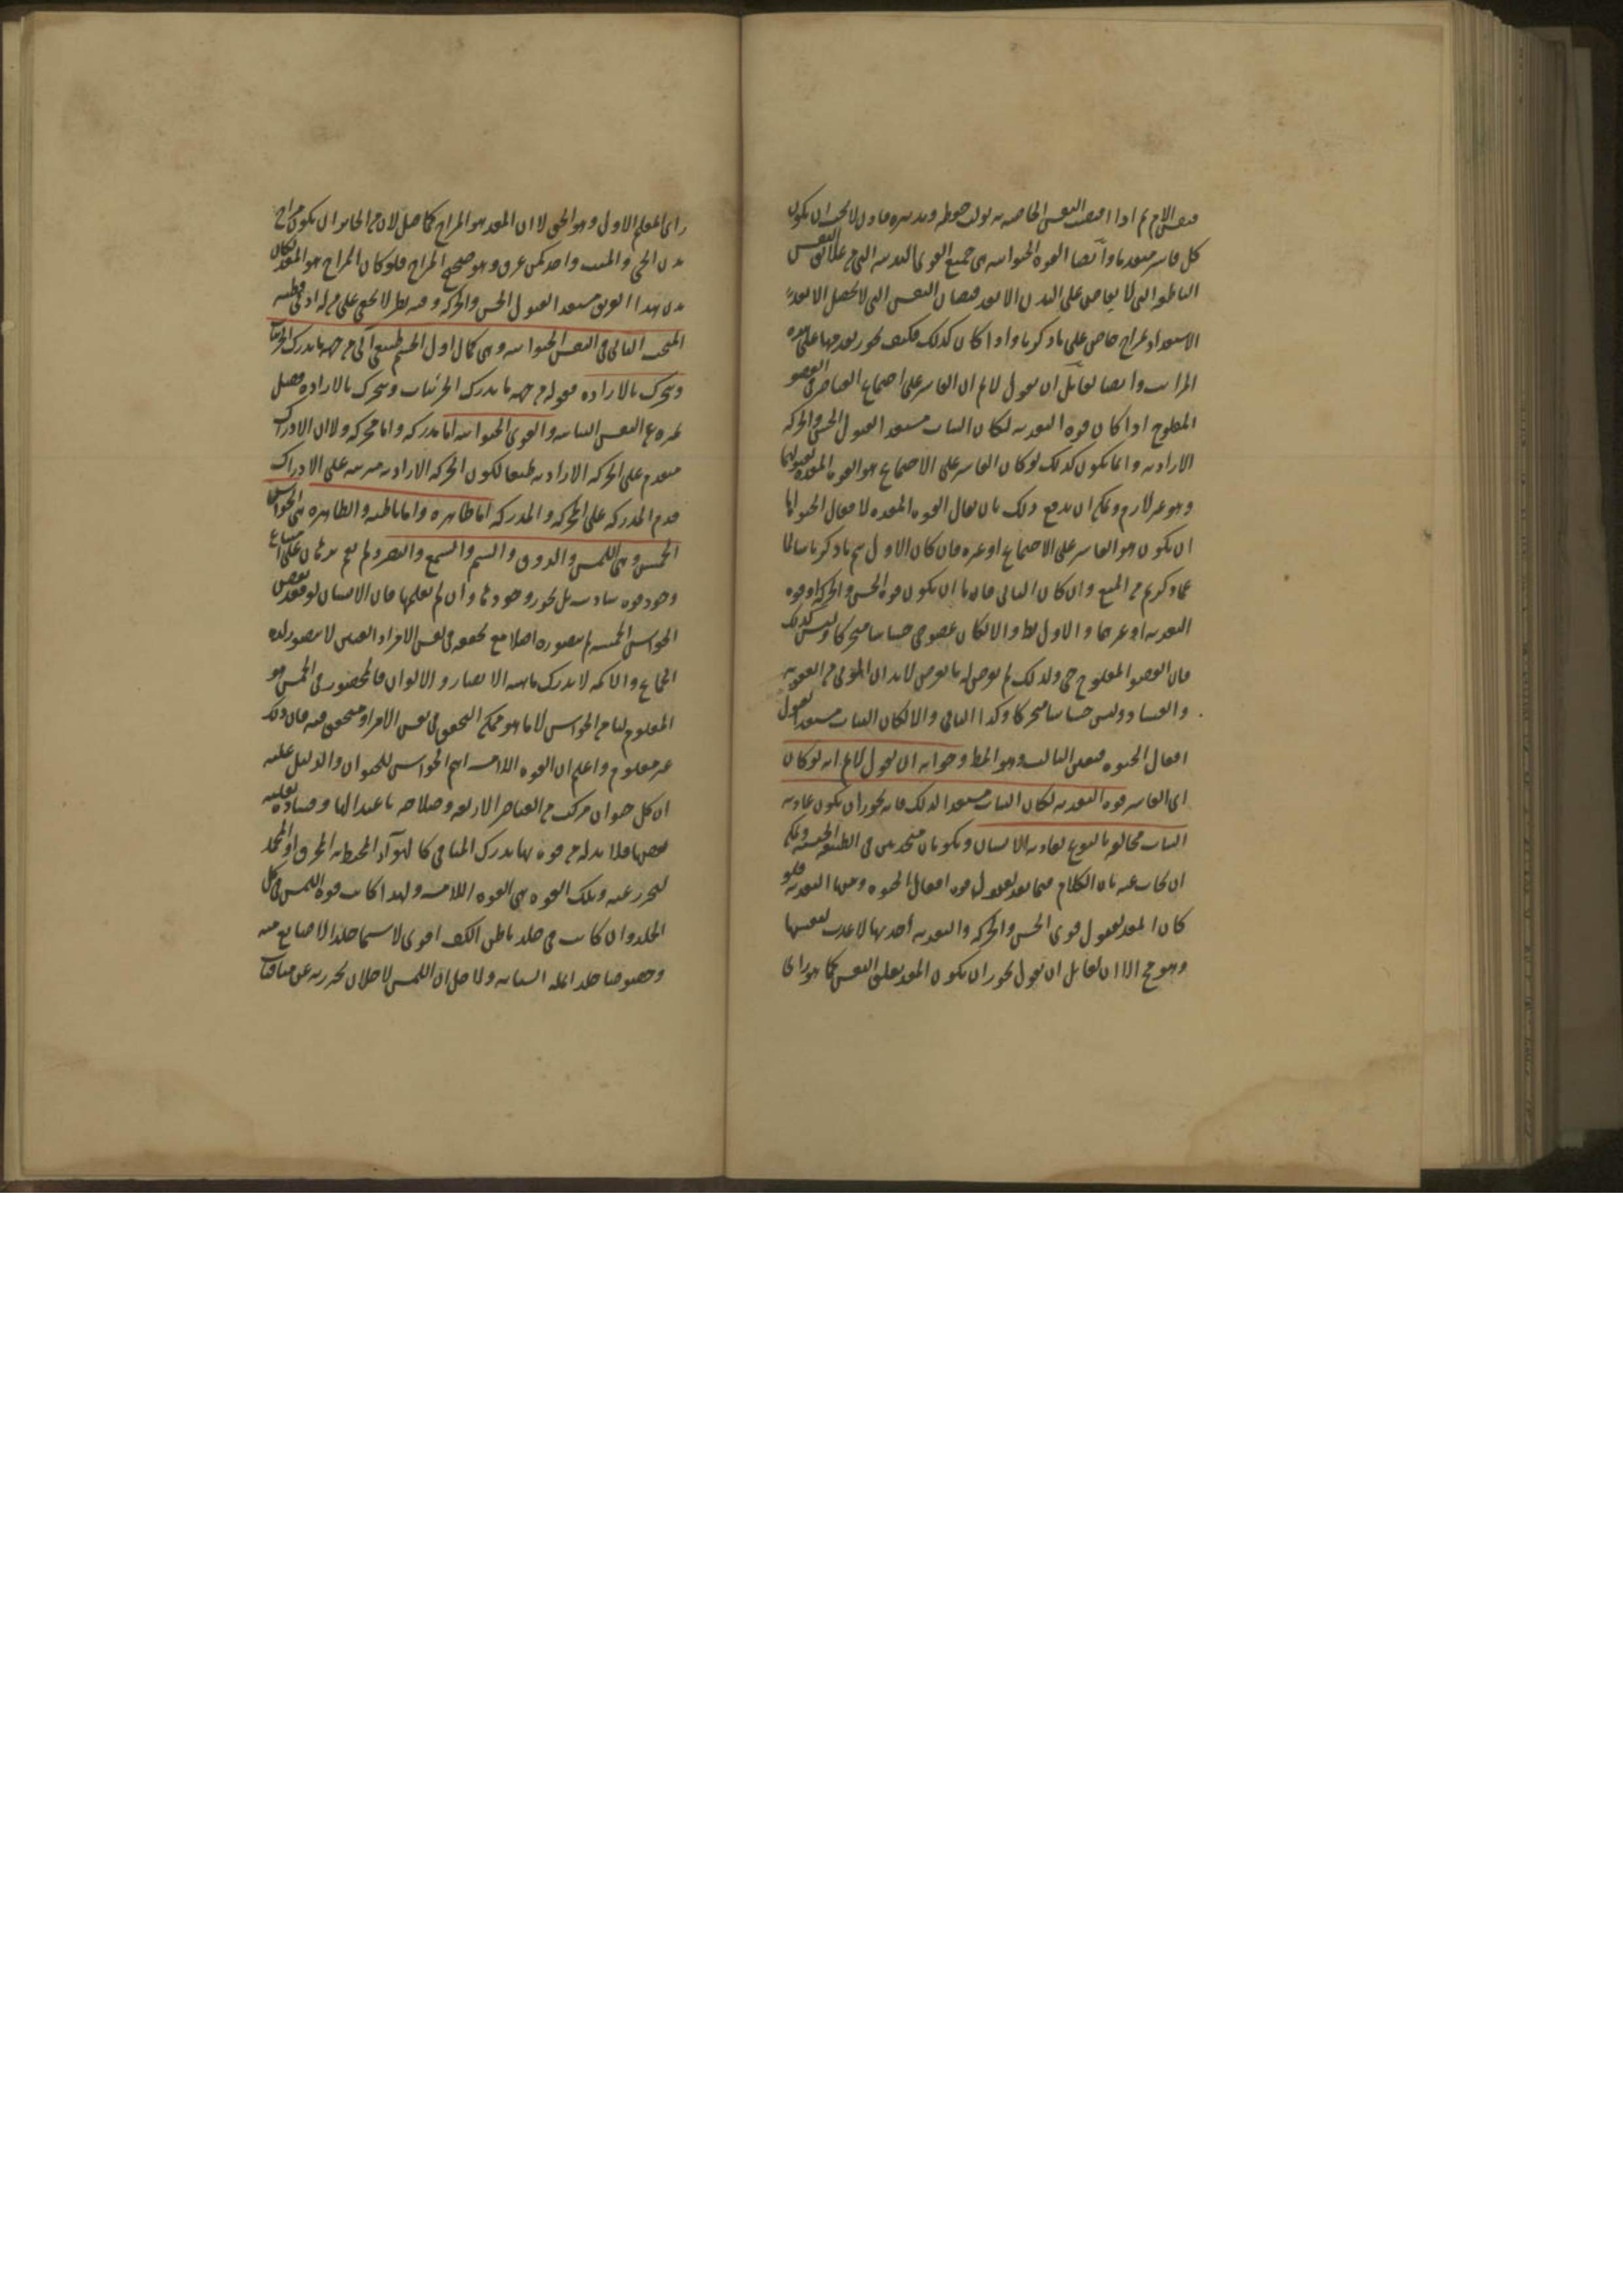 كل قاسر معد لها وأيضا القوة الحيوانية هي جميع القوى البدنية التي من علائق النفس
الناطقة التي لا يفاض على البدن الا بعد فيضان النفس التي لا تحصل الا بعد
الاستعداد بمزاج خاص على ما ذكرنا واذا كان كذلك فكيف يجوز تقدمها على هذه
المراتب وايضا لقائل ان يقول لا نم ان القاسر على اجتماع العناصر في العضو
المفلوج اذا كان قوة التغذية لكان النبات مستعدا لقبول الحس والحركة
الارادية وانما يكون كذلك لو كان القاسر على الاجتماع هو القوة المعدة لقبولها
وهو غير لازم ويمكن ان يدفع ذلك بان يقال القوة المعدة لافعال الحيوة اما
ان يكون هو القاسر على الاجتماع او غيره فان كان الاول تم ما ذكرنا سالما
عما ذكرتم من المنع وان كان الثاني فاما ان يكون قوة الحس والحركة او قوة
التغذية او غيرهما والاول بط والا لكان عضو حي حساسا متحركا وليس كذلك
فان العضو المفلوج حي ولذلك لم يعرض له ما يعرض لابدان الموتى من العفونة
والفساد وليس حساسا متحركا وكذا الثاني والا لكان النبات مستعدا لقبول
افعال الحيوة فتعين الثالث وهو المط وجوابه ان يقول لا نم انه لو كان
اي القاسر قوة التغذية لكان النبات مستعدا لذلك فانه يجوز ان يكون غاذية
النبات مخالفة بالنوع لغاذية الانسان ويكونان متحدين في الطبيعة الجنسية ويمكن
ان يجاب عنه بان الكلام فيما يعد لقبول قوة افعال الحيوة ومنها التغذية فلو
كان المعد لقبول قوى الحس والحركة والتغذية احديها لاعدت لنفسها
وهو مح الا ان لقائل ان يقول يجوز ان يكون المعد تعلق النفس كما هو راى
راى المعلم الاول وهو الحق لا ان المعد هو المزاج كما قيل لان من الجائز ان يكون مزاج
بدن الحي والميت واحد كمن غرق وهو صحيح المزاج فلو كان المزاج هو المعد لكان
بدن هذا الغريق مستعدا لقبول الحس والحركة وفيه نظر لا يخفى على من له ادنى فطنة
المبحث الثاني في النفس الحيوانية وهي كمال اول لجسم طبيعي آلي من جهة ما يدرك الجزئيات
ويتحرك بالارادة فقوله من جهة ما يدرك الجزئيات ويتحرك بالارادة فصل
يميزه عن النفس النباتية والقوى الحيوانية اما مدركة واما محركة ولان الادراك
متقدم على الحركة الارادية طبعا لكون الحركة الارادية مترتبة على الادراك
قدم المدركة على المحركة والمدركة اما ظاهرة واما باطنة والظاهرة هي الحواس
الخمس وهي اللمس والذوق والشم والسمع والبصر ولم يقم برهان على امتناع
وجود قوة سادسة بل يجوز وجودها وان لم نعلمها فان الانسان لو فقد بعض
الحواس الخمسة لم يتصوره اصلا مع تحققه في نفس الامر اذ العنين لا يتصور لذة
الجماع والاكمه لا يدرك ماهية الابصار والالوان فالمحصور في الخمس هو
المعلوم لنا من الحواس لا ما هو ممكن التحقق في نفس الامر او متحقق فيه فان ذلك
غير معلوم واعلم ان القوة اللامسة اهم الحواس للحيوان والدليل عليه
ان كل حيوان مركب من العناصر الاربعة وصلاحه باعتدالها وفساده بغلبة
بعضها فلا بد له من قوة بها يدرك المنافي كالهوآء المحيط به المحرق او المجمد
ليتحرز عنه وتلك القوة هي القوة اللامسة ولهذا كانت قوة اللمس في كل
الجلد وان كانت في جلد باطن الكف اقوى لا سيما جلد الاصابع منه
وخصوصا جلد انملة السبابة ولاجل ان اللمس لاجل ان يتحرز به عن منافيات